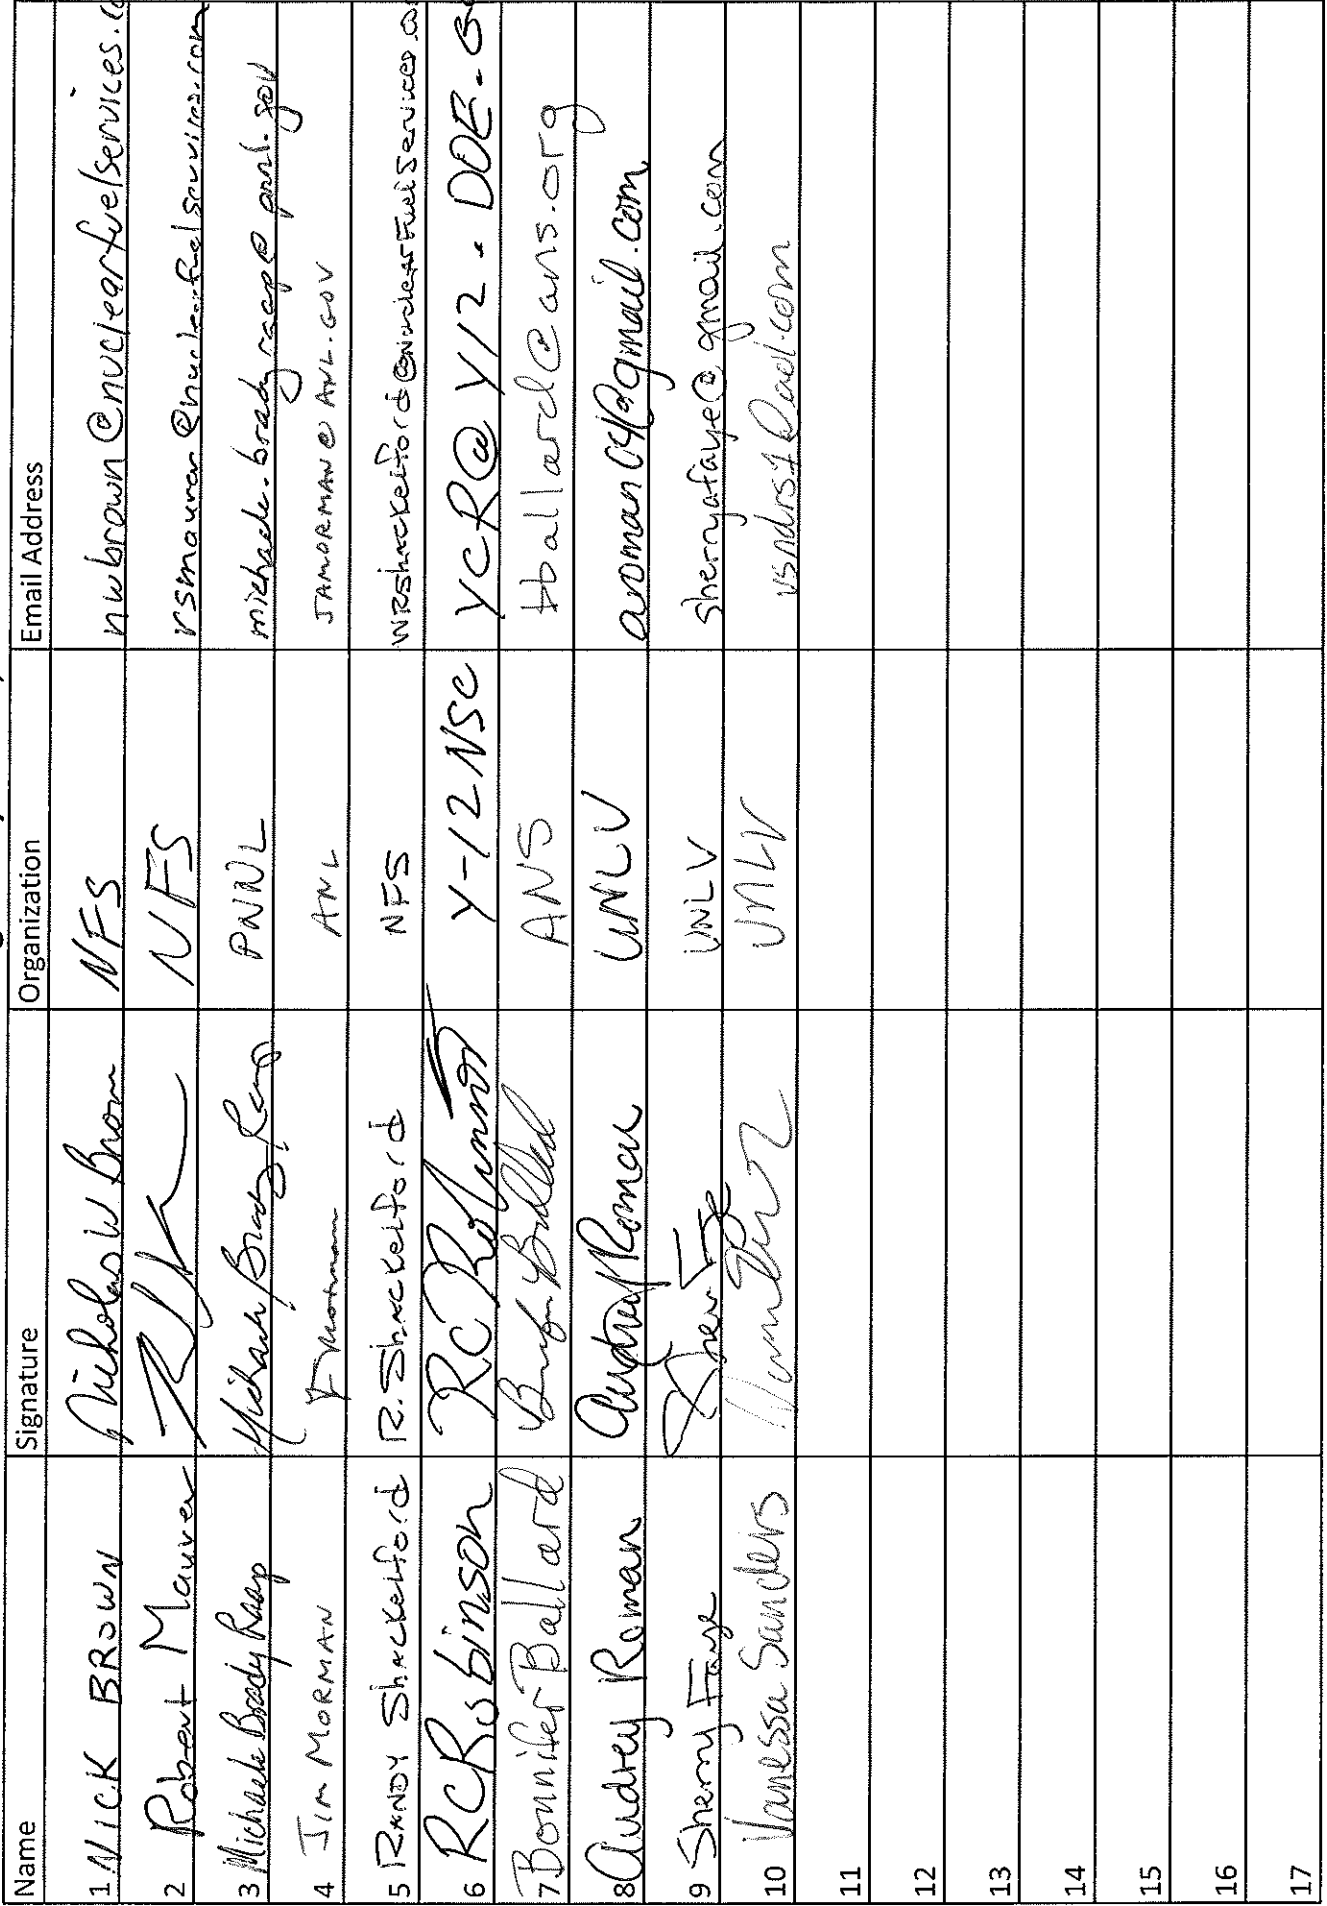 Name Signature Organization Email Address
1 NICK BROWN Nicholas W Brown NFS nwbrown@nuclearfuelservices.co
2 Robert Maurer NFS rsmaurer@nuclearfuelservices.com
3 Michaele Brady Raap Michaele Brady Raap PNNL michaele.bradyraap@pnnl.gov
4 JIM MORMAN J Morman ANL JAMORMAN@ANL.GOV
5 RANDY Shackelford R. Shackelford NFS WRShackelford@NuclearFuelServices.co
6 RC Robinson RC Robinson Y-12 NSC YCR@Y12.DOE.G
7 Bonnifer Ballard Bonnifer Ballard ANS bballard@ans.org
8 Audrey Roman Audrey Roman UNLV aroman04@gmail.com
9 Sherry Faye Sherry Faye UNLV sherryafaye@gmail.com
10 Vanessa Sanders UNLV vsndrs1@aol.com
11
12
13
14
15
16
17